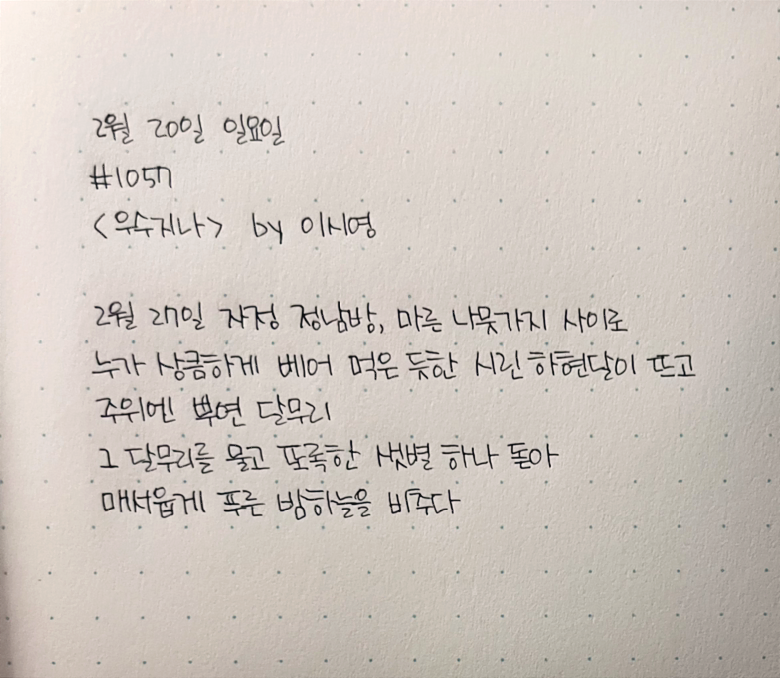 2월 20일 일요일
#1057
<우수지나> by 이시영
2월 27일 자정 정남방, 마른 나뭇가지 사이로
누가 상큼하게 베어 먹은 듯한 시린 하현달이 뜨고
주위엔 뽀연 달무리
그 달무리를 물고 또록한 샛별 하나 돋아
매서웁게 푸른 밤하늘을 비추다